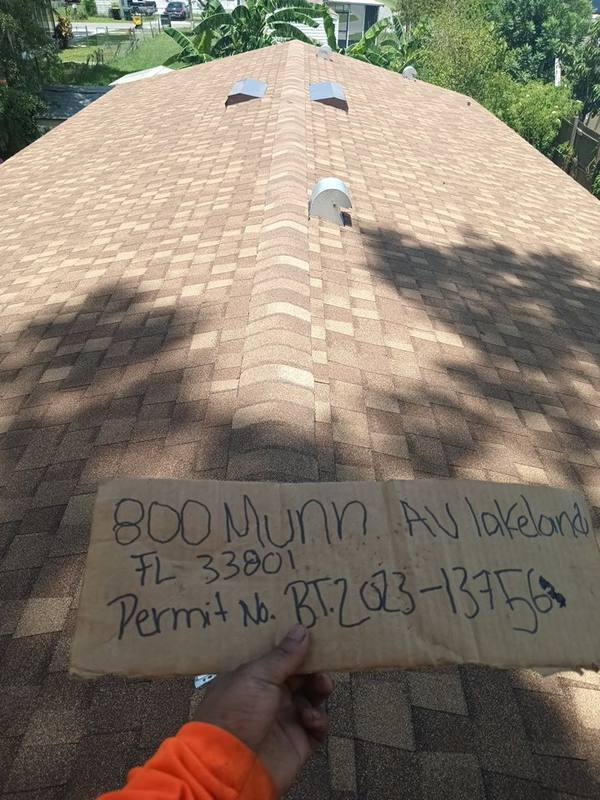 800 Munn AV lakeland
FL 33801
Permit No. BT.2023-13756